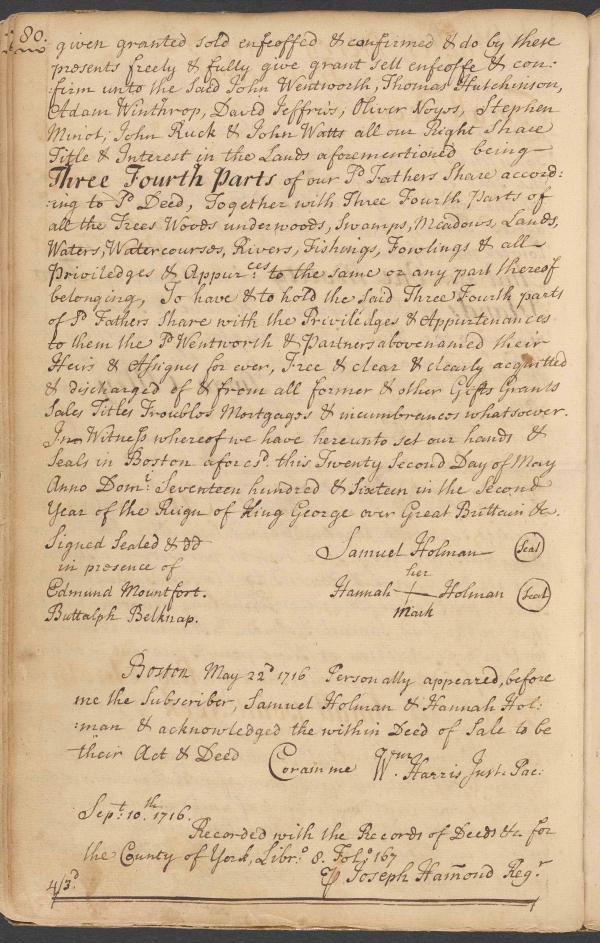 80.
given granted sold enfeoffed & confirmed & do by these
presents freely & fully give grant sell enfeoffe & con:
:firm unto the said John Wentworth, Thomas Hutchinson,
Adam Winthrop, David Jeffris, Oliver Noyos, Stephen
Minot, John Ruck & John Watts all our Right Share
Title & Interest in the Lands aforementioned being
Three Fourth Parts of our Sd Fathers Share accord:
:ing to Sd Deed, Together with Three Fourth Parts of
all the Trees Woods underwoods, Swamps, Meadows, Lands,
Waters, Watercourses, Rivers, Fishings, Fowlings & all
Priviledges & Appurces to the same or any part thereof
belonging, To have & to hold the said Three Fourth parts
of Sd Fathers Share with the Priviledges & Appurtenances
to them the Sd Wentworth & Partners abovenamed their
Heirs & Assignes for ever, Free & clear & clearly acquitted
& discharged of & from all former & other Gifts Grants
Sales Titles Troubles Mortgages & incumbrances whatsoever.
In Witness whereof we have hereunto set our hands &
Seals in Boston aforesd. this Twenty Second Day of May
Anno Domi: Seventeen hundred & Sixteen in the Second
Year of the Reign of King George over Great Brittain &c.
Signed Sealed & DD
in presence of
Edmund Mountfort.
Buttalph Belknap.
Samuel Holman (Seal)
her
Hannah + Holman (Seal)
mark
Boston May 22d 1716 Personally appeared, before
me the Subscriber, Samuel Holman & Hannah Hol:
:man & acknowledged the within Deed of Sale to be
their Act & Deed Coram me Wm. Harris Just. Pac:
Sept. 10.th 1716.
Recorded with the Records of Deeds &c for
the County of York, Libro. 8. Folo. 167
Joseph Hamond Regr
4/3d.